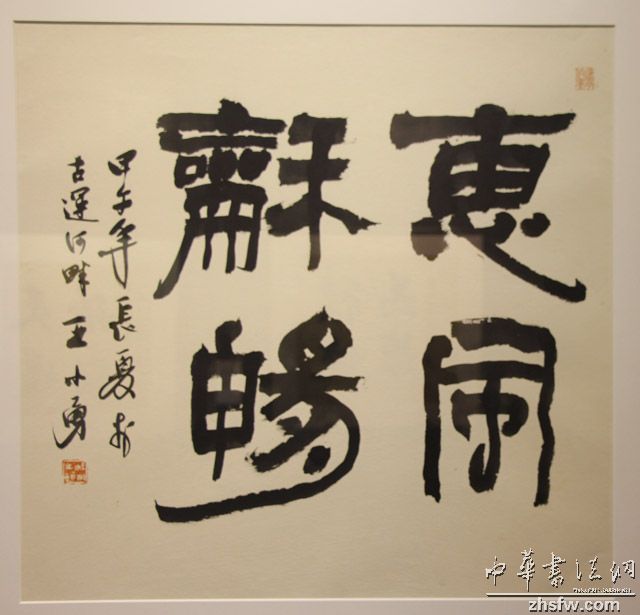 惠風
龢暢
甲午年長夏於
古運河畔王小勇
中华书法网
zhsfw.com